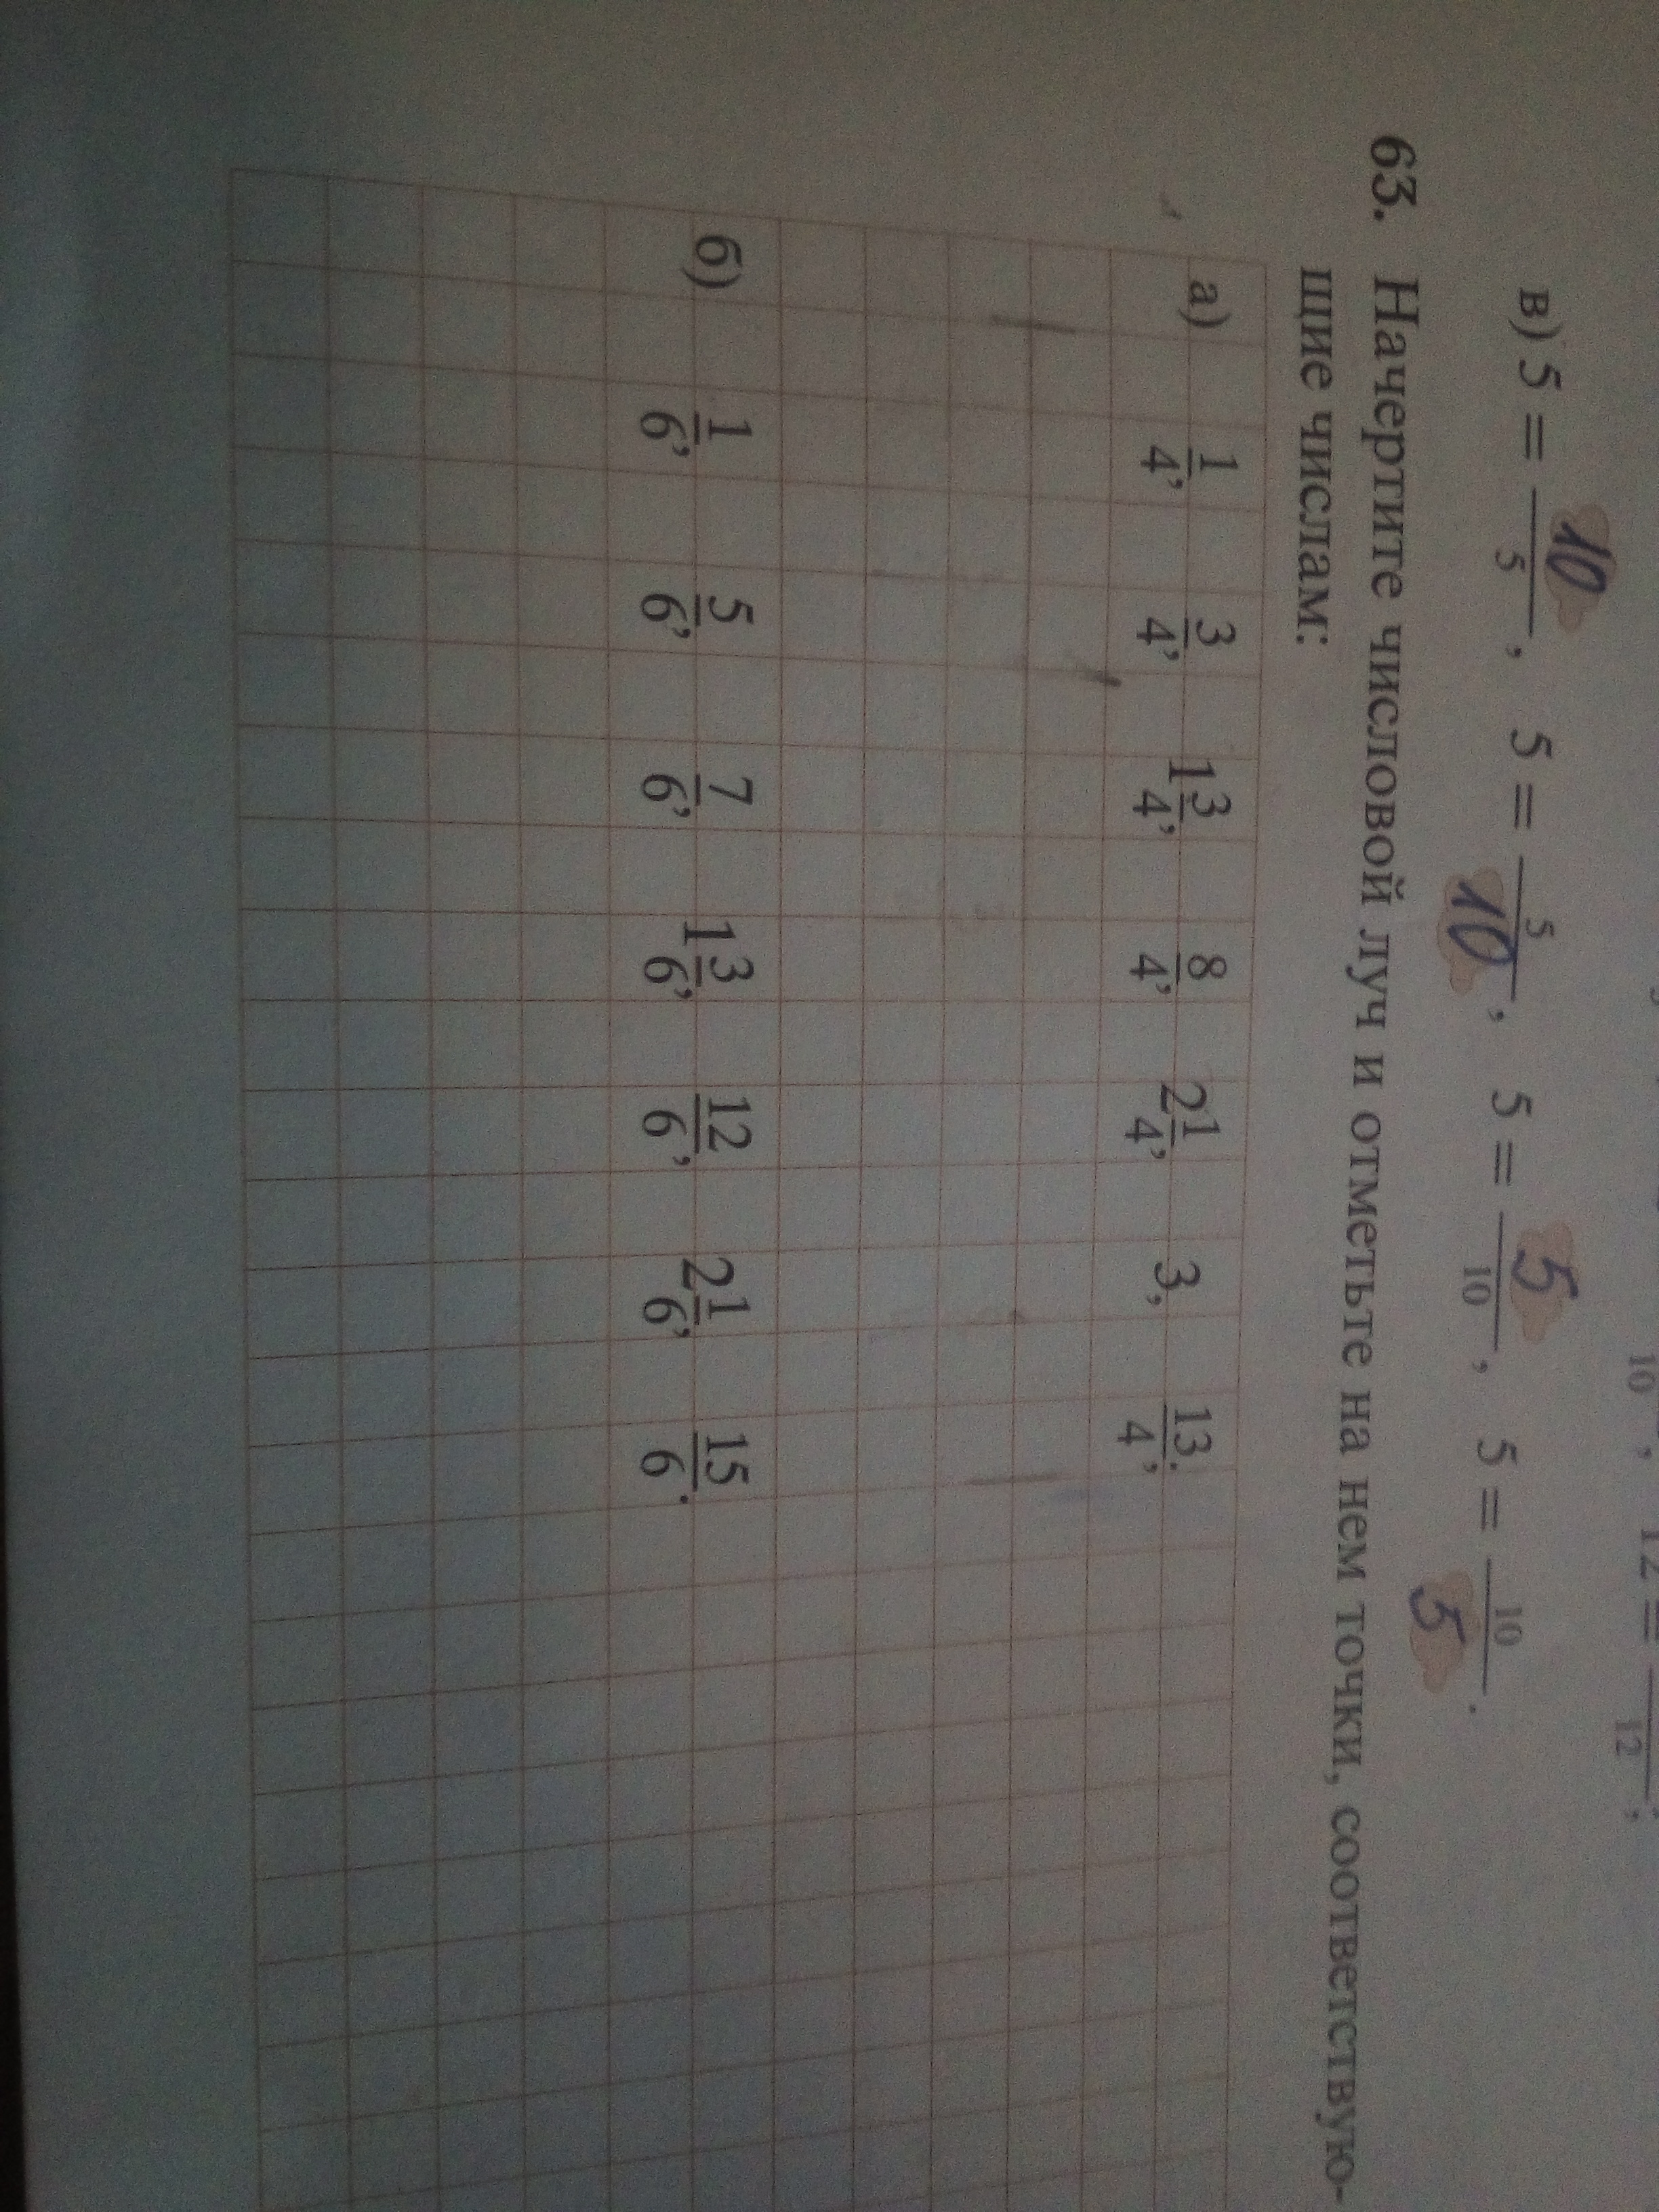 10, 12 = 12;
в) 5 = 10/5, 5 = 5/10, 5 = 5/10, 5 = 10/5.
63. Начертите числовой луч и отметьте на нем точки, соответствую-
щие числам:
а) 1/4, 3/4, 1 3/4, 8/4, 2 1/4, 3, 13/4;
б) 1/6, 5/6, 7/6, 1 3/6, 12/6, 2 1/6, 15/6.